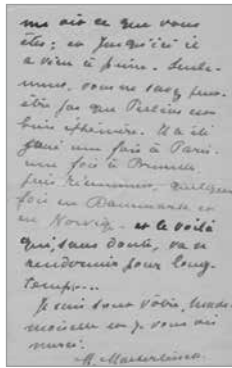 me dit ce que vous
êtes ; et jusqu'ici il
a vieu à peine. Seule-
ment, vous ne savez peut-
être pas que Pelléas est
bien éphémère. Il a été
joué une fois à Paris.
une fois à Bruxelles
puis récemment, quelques
fois en Danemark et
en Norvège - et le voilà
qui, sans doute, va se
rendormir pour long-
temps...
Je suis tout vôtre, Made-
moiselle et je vous dis
merci.
M. Maeterlinck